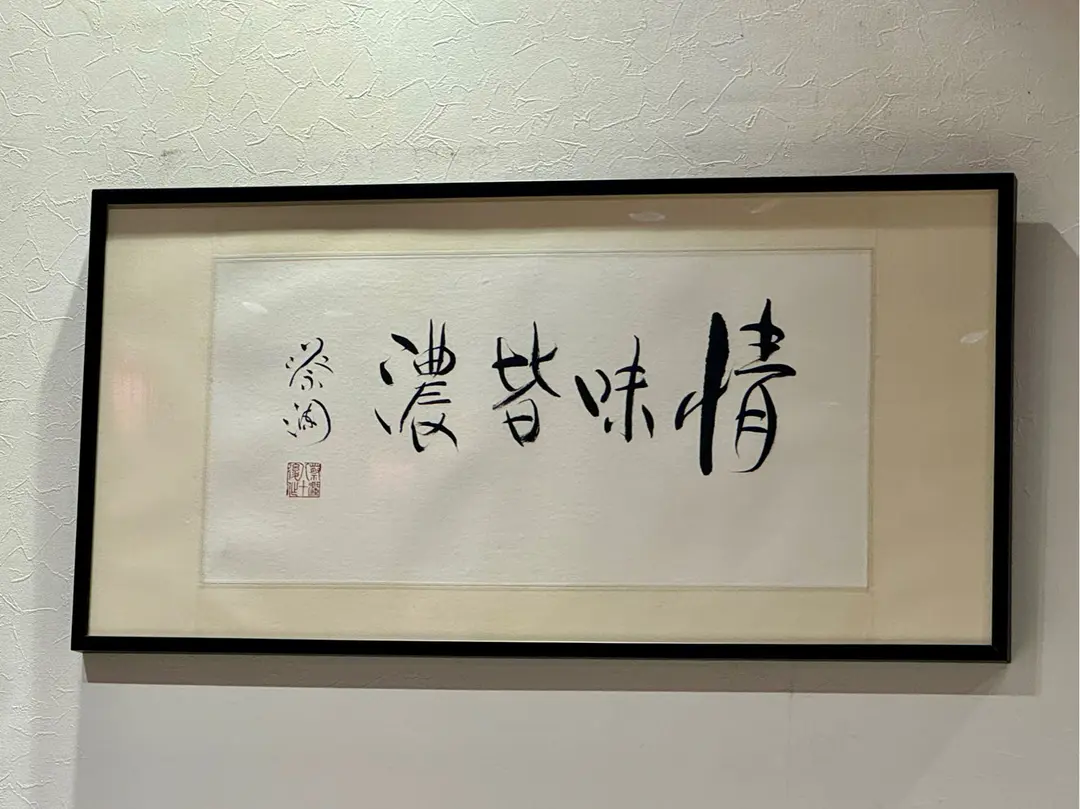 情味皆濃
蔡瀾